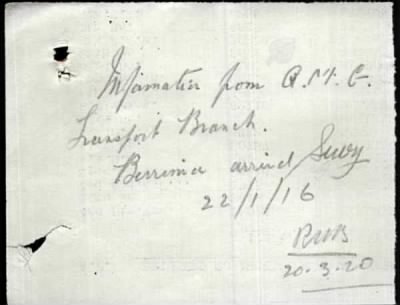 Information from Q.M.G.
Transport Branch.
Berrima arrived Suez
22/1/16
RWB
20.3.20